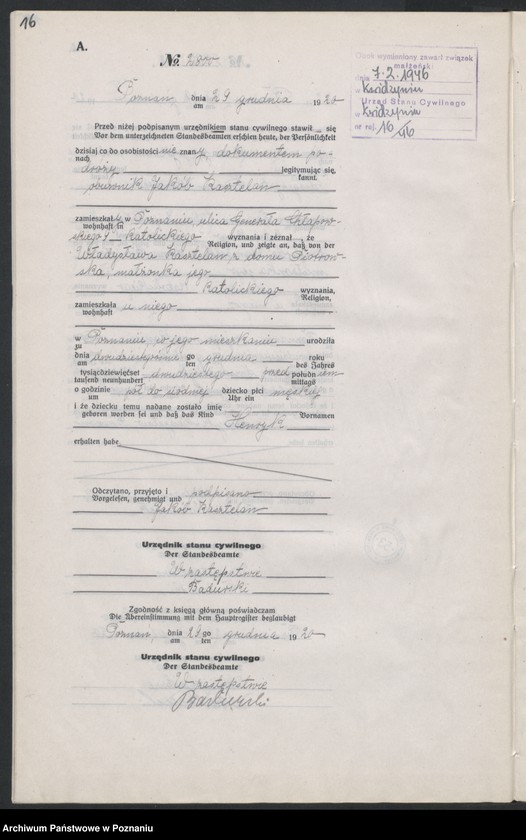 16
A.
No. 2800
Poznan, dnia 29 grudnia 1920
am
Opok wymieniony zawarł związek
małżeński
dnia 7.2.1946
w Kwidzynie
Urząd Stanu Cywilnego
w Kwidzynie
nr rej. 16/46
Przed niżej podpisanym urzędnikiem stanu cywilnego stawił się
Vor dem unterzeichneten Standesbeamten erschien heute, der Persönlichkeit
dzisiaj co do osobistości nie znany, dokumentem po-
nach
droży legitymując się,
kannt.
Jakób Kasztelan
zamieszkały w Poznaniu ulica Generała Chłapow-
wohnhaft in
skiego 4 katolickiego wyznania i zeznał, że
Religion, und zeigte an, daß von der
Władysława Kasztelan z domu Piotrow-
ska, małżonka jego
katolickiego wyznania,
Religion,
zamieszkała u niego
wohnhaft
w Poznaniu, w jego mieszkaniu urodziła
zu
dnia go grudnia roku
am ten des Jahres
tysiącdziewięćset dwudziestego przed południem
tausend neunhundert mittags
o godzinie pół do ósmej dziecko płci męskiej
um Uhr ein
i że dziecku temu nadane zostało imię
geboren worden sei und daß das Kind Henryk Vornamen
erhalten habe.
Odczytano, przyjęto i podpisano
Vorgelesen, genehmigt und
Jakób Kasztelan
Urzędnik stanu cywilnego
Der Standesbeamte
W zastępstwie
Badurski
Zgodność z księgą główną poświadczam
Die Übereinstimmung mit dem Hauptregister beglaubigt
Poznan, dnia 29 go grudnia 1920
am ten
Urzędnik stanu cywilnego
Der Standesbeamte
W zastępstwie
Badurski
Archiwum Państwowe w Poznaniu